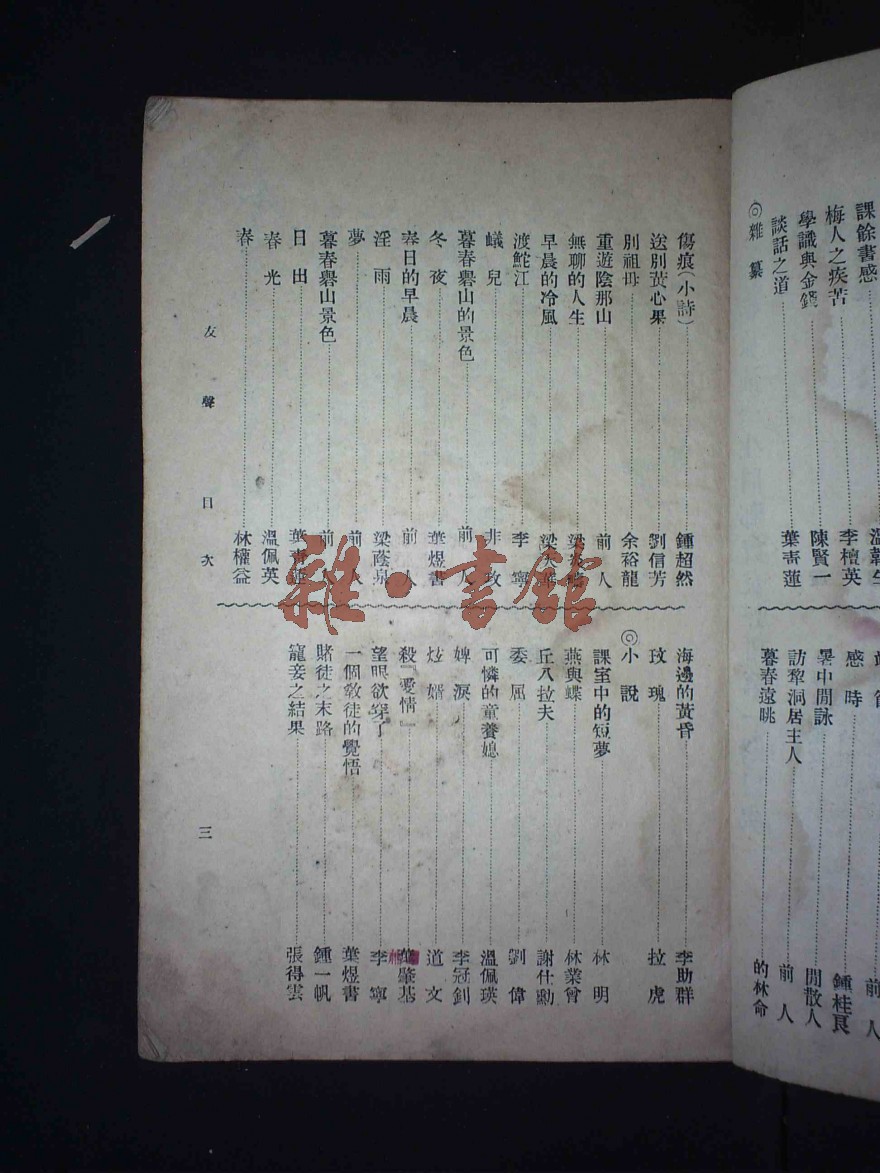 課餘書感
溫
梅人之疾苦 李檀英
學識與金錢 陳賢一
談話之道 葉靑蓮
◎雜纂
感時 鍾桂良
暑中閒詠 閒散人
訪犂洞居主人 前人
暮春遠眺 的林命
傷痕(小詩) 鍾超然
送別黃心果 劉信芳
別祖母 余裕龍
重遊陰那山 前人
無聊的人生
早晨的冷風
渡鮀江 李寧
蟻兒 非玫
暮春礐山的景色 前人
冬夜 葉煜書
春日的早晨 前人
淫雨 梁蔭泉
夢 前人
暮春礐山景色 前人
日出 葉靑蓮
春光 溫佩英
春 林權益
海邊的黃昏 李助群
玫瑰 拉虎
◎小說
課室中的短夢 林明
燕與蝶 林業曾
丘八拉夫 謝仕勳
委屈 劉偉
可憐的童養媳 溫佩瑛
婢淚 李冠釗
炫婿 道文
殺『愛情』 葉肇基
望眼欲穿了 李寧
一個敎徒的覺悟 葉煜書
賭徒之末路 鍾一帆
寵妾之結果 張得雲
友聲目次
三
雜·書館